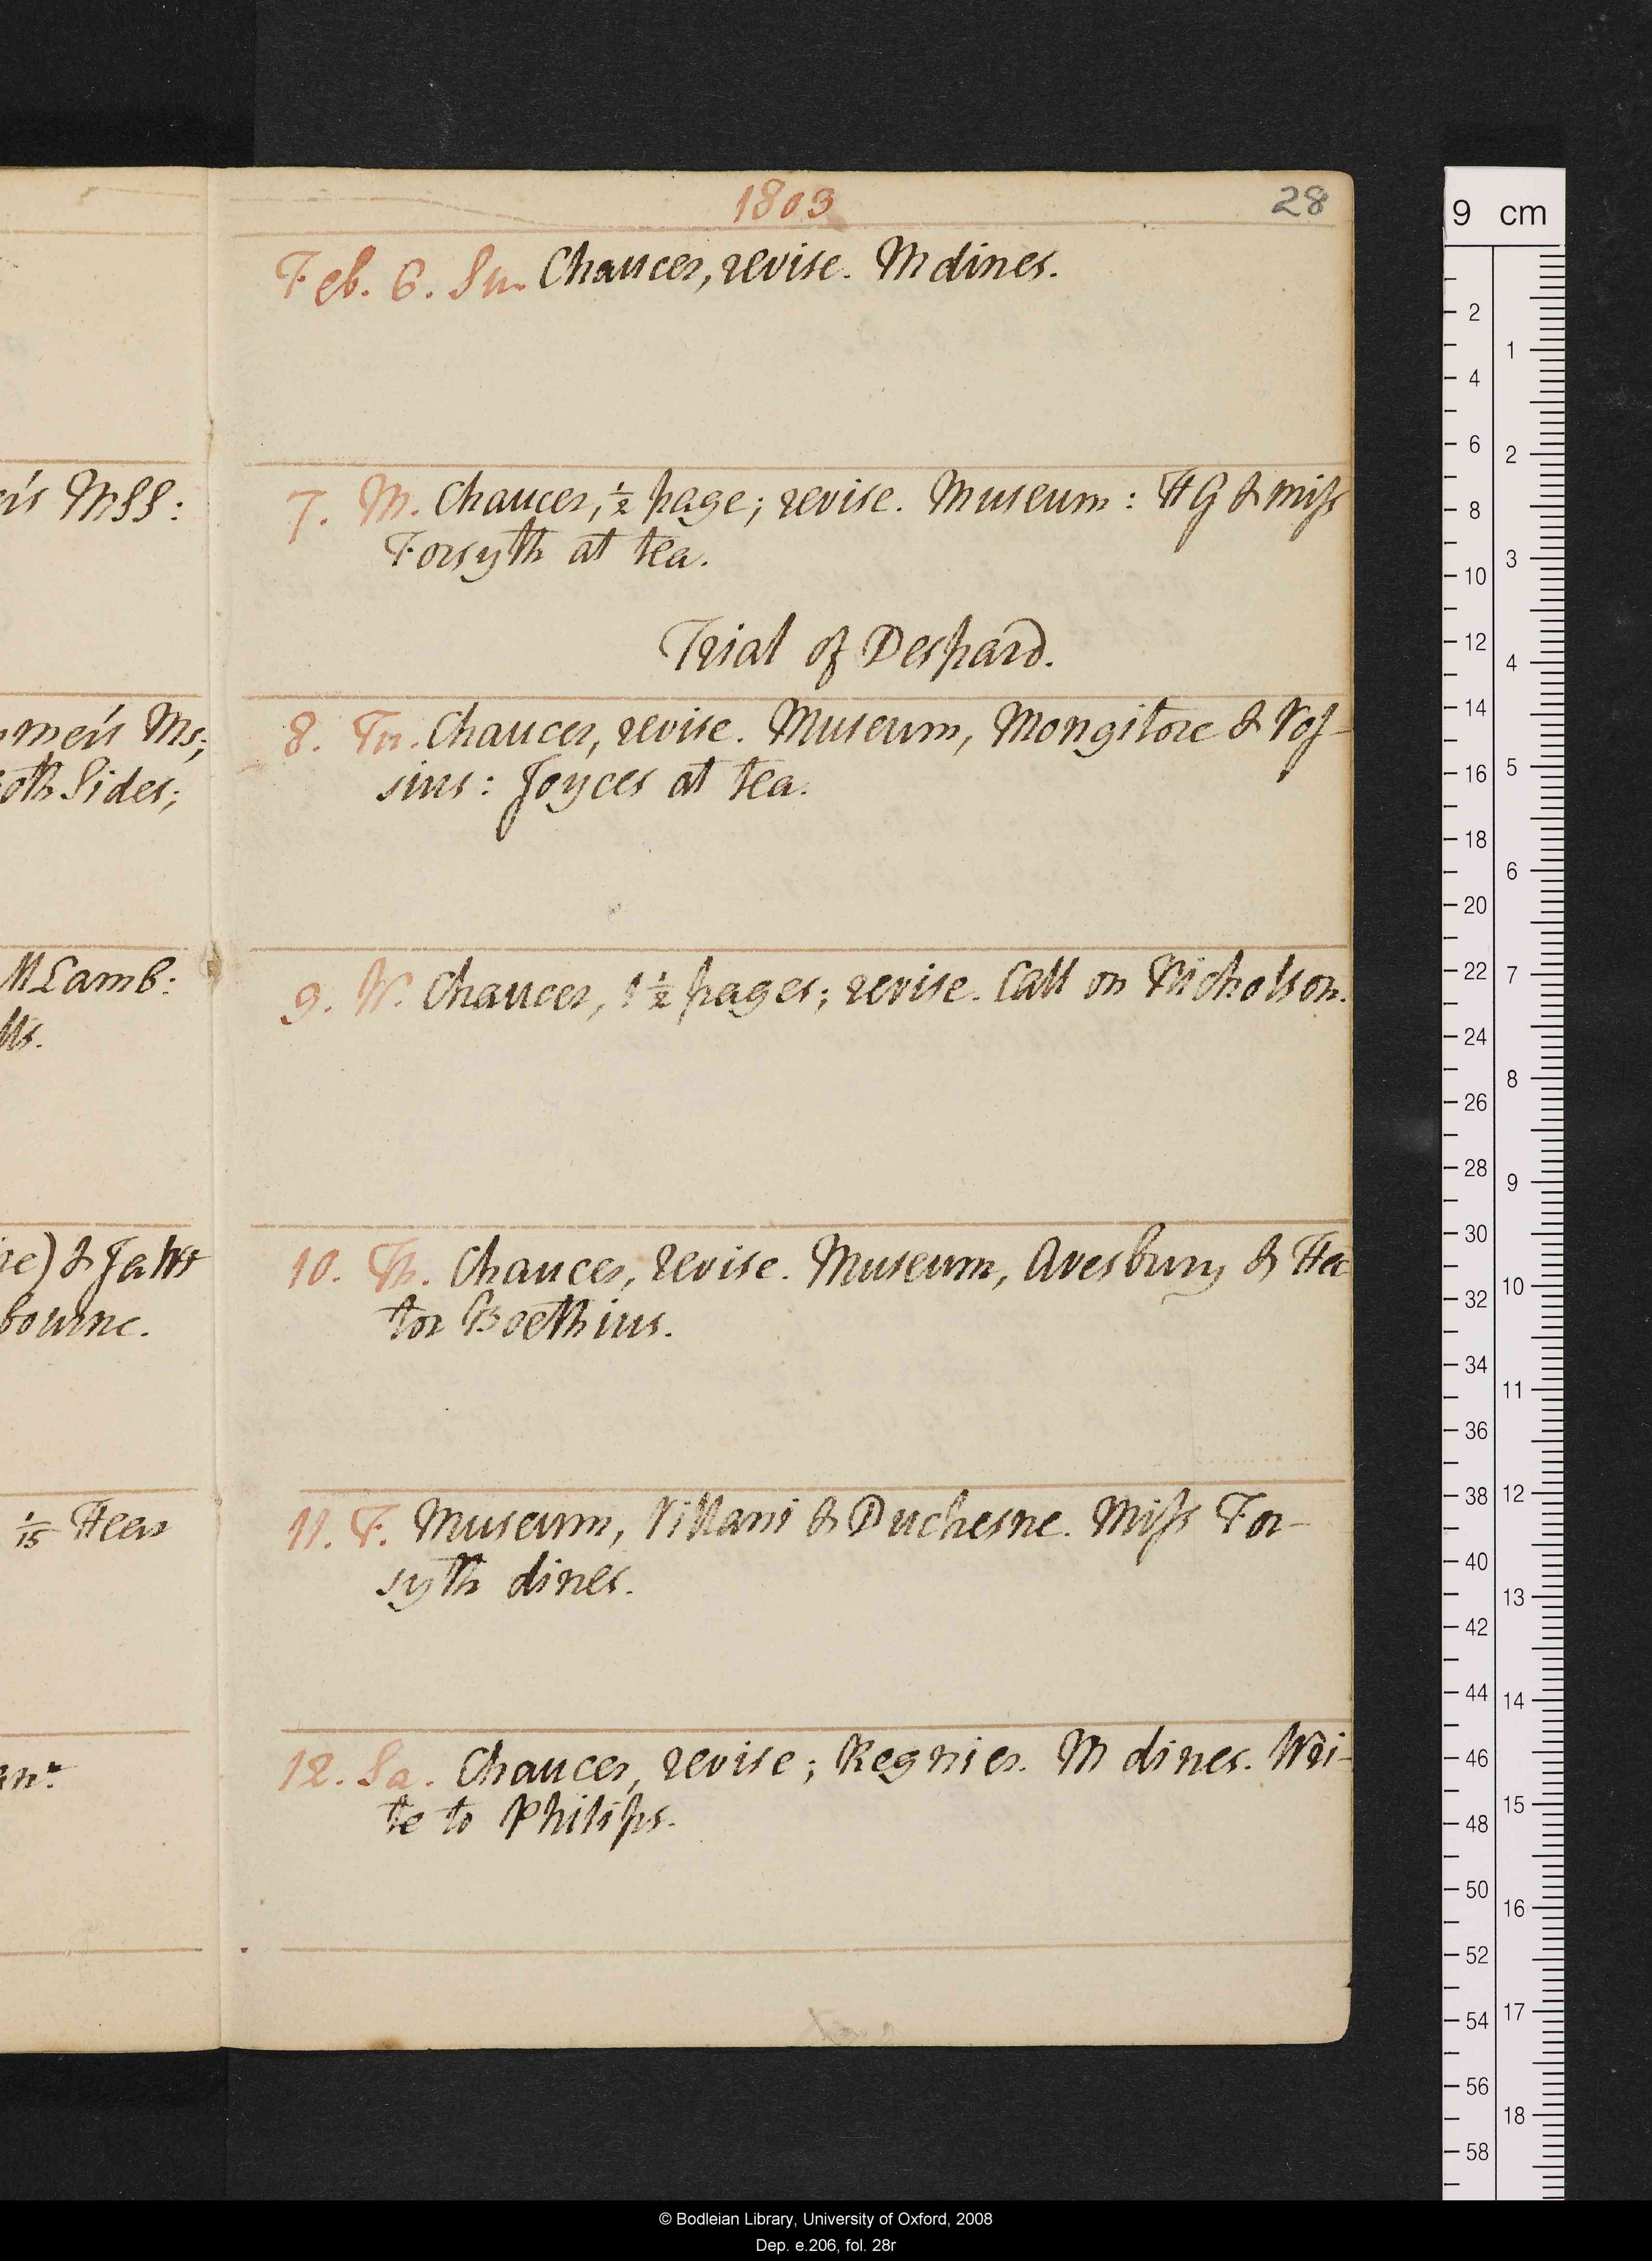 1803
28
Feb. 6. Su. Chaucer, revise. M dines.
7. M. Chaucer, ½ page; revise. Museum: HG & miss
Forsyth at tea.
Trial of Despard.
8. Tu. Chaucer, revise. Museum, Mongitore & Vos-
sius: Joyces at tea.
9. W. Chaucer, 1½ pages; revise. Call on Nicholson.
10. Th. Chaucer, revise. Museum, Avesbury & Hec
tor Boethius.
11. F. Museum, Villani & Duchesne. Miss For-
syth dines.
12. Sa. Chaucer, revise; Regnier. M dines. Wri-
te to Philips.
n's MSS:
men's Ms;
oth Sides;
M Lamb:
lls.
re) &
bourne.
1/15 Hear
9 cm
2 4 6 8 10 12 14 16 18 20 22 24 26 28 30 32 34 36 38 40 42 44 46 48 50 52 54 56 58
1 2 3 4 5 6 7 8 9 10 11 12 13 14 15 16 17 18
© Bodleian Library, University of Oxford, 2008
Dep. e.206, fol. 28r